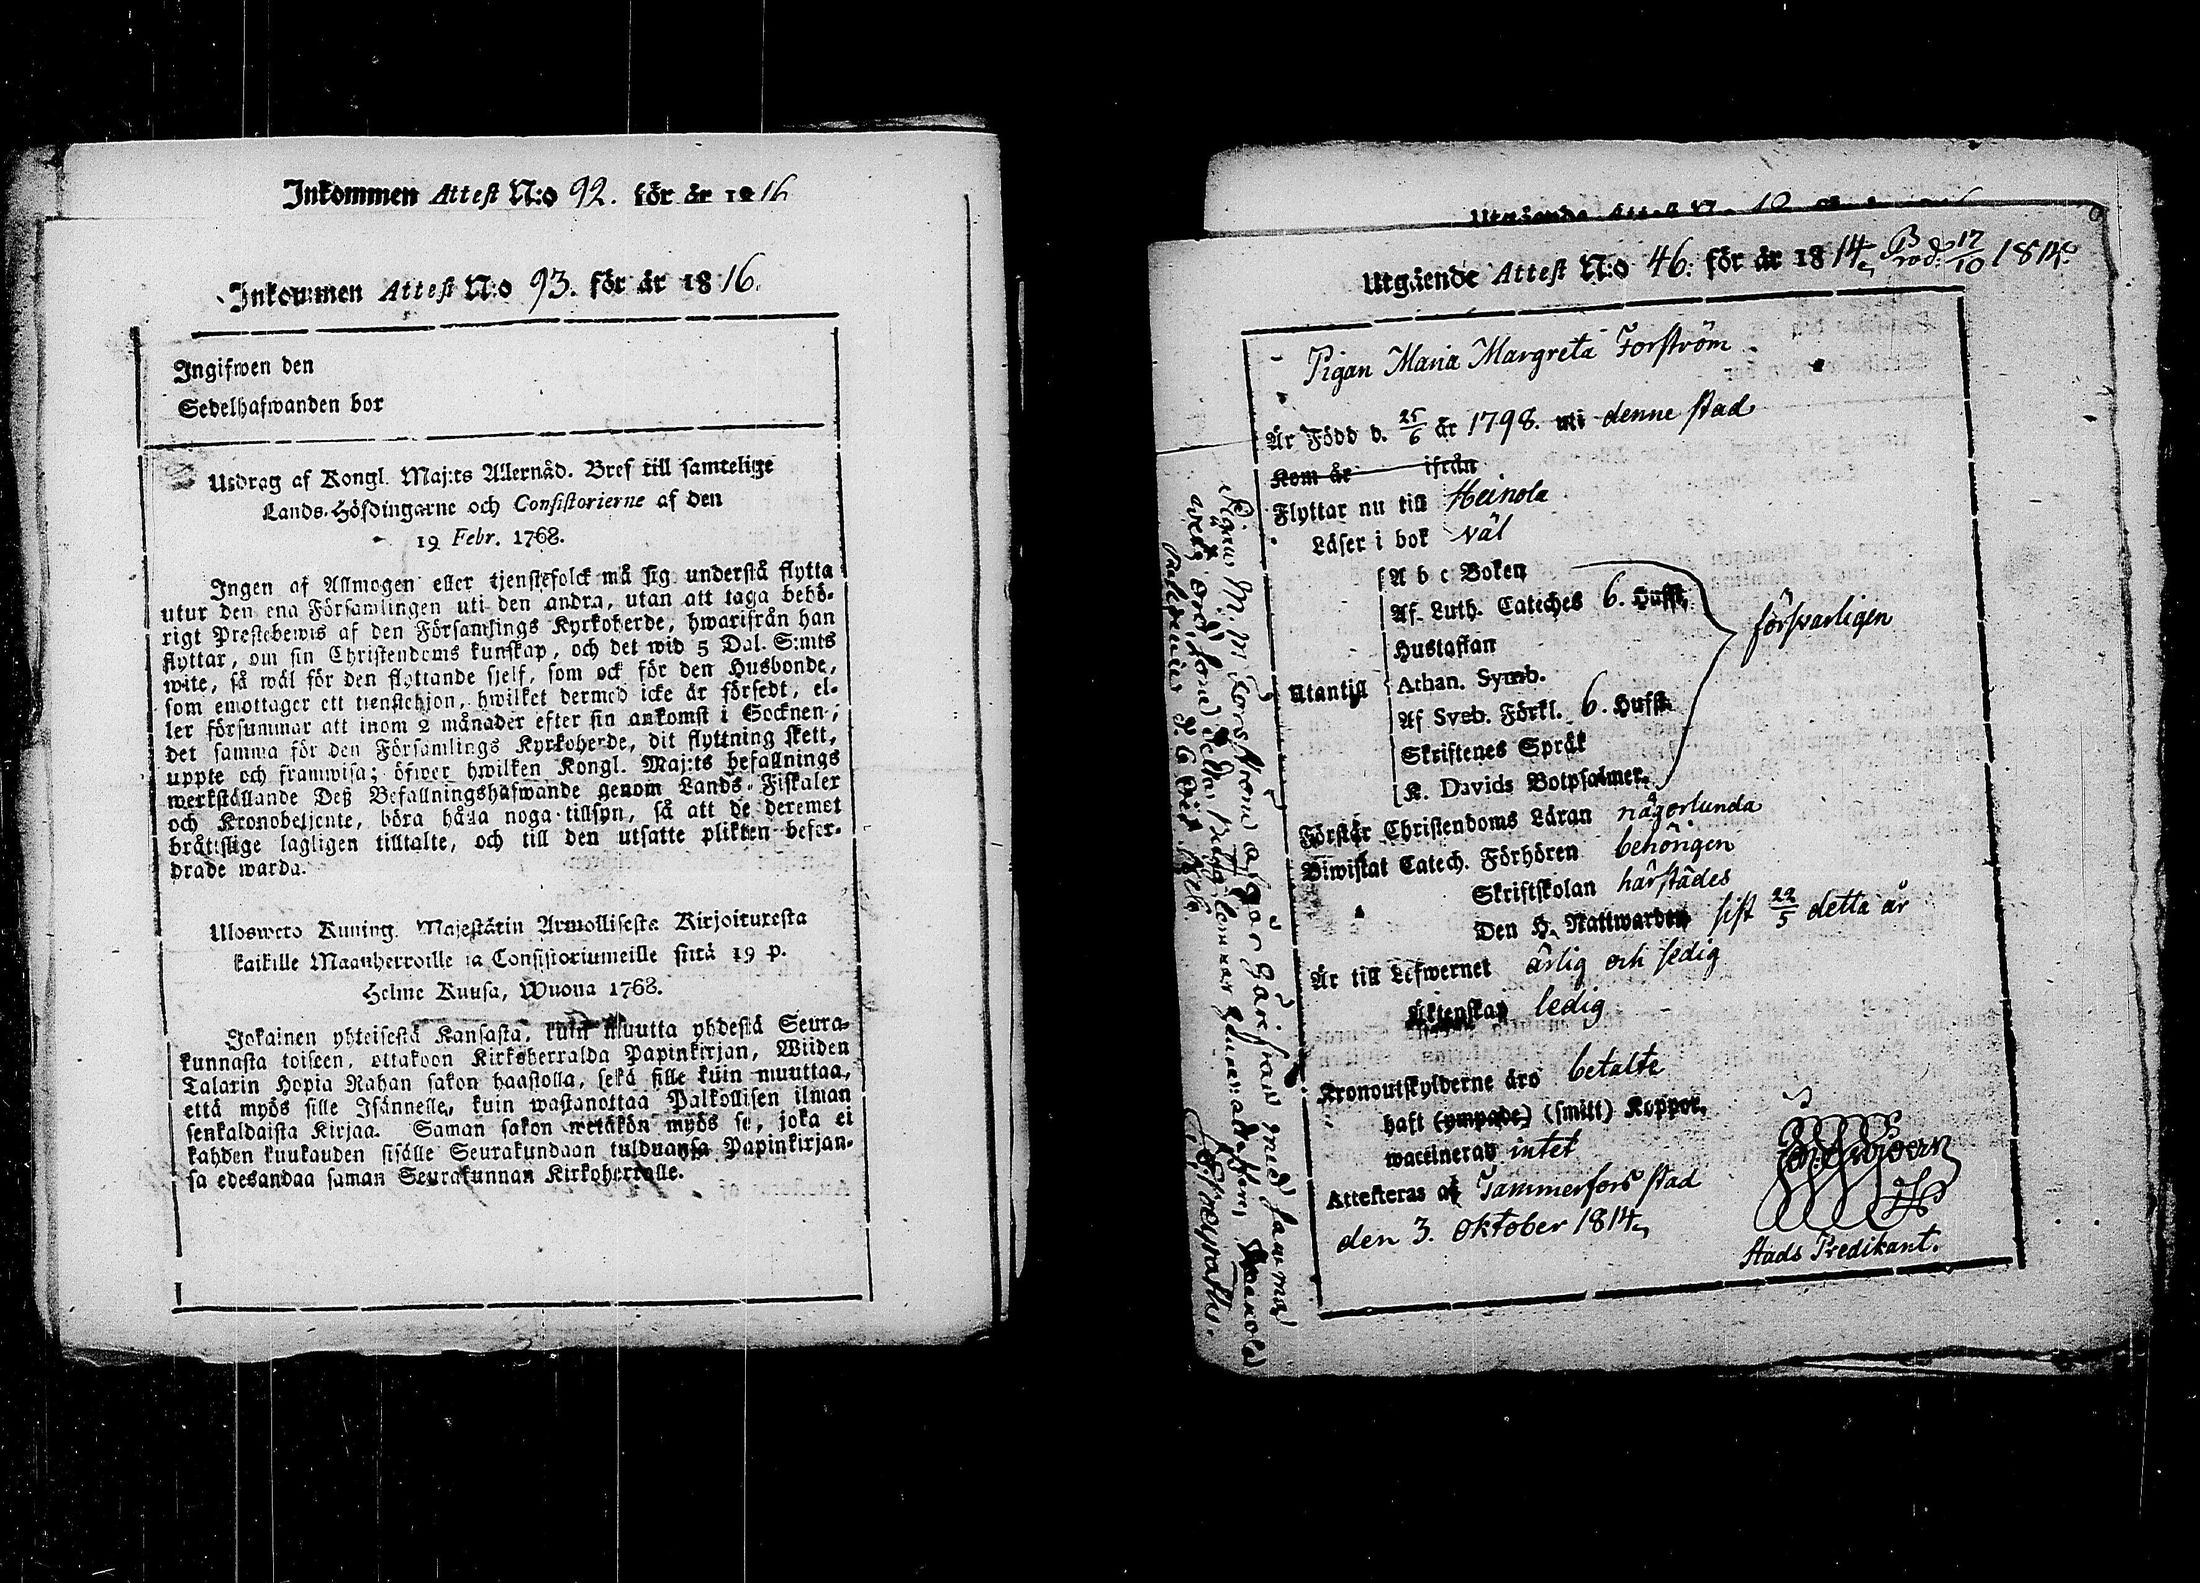 Inkommen Attest N:o 92. för år 1816
Inkommen Attest N:o 93. för år 1816.
Ingifwen den
Sedelhafwanden bor
Utdrag af Kongl. Maj:ts Allernåd. Bref till samtelige
Lands-Höfdingarne och Consistorierne af den
19 Febr. 1768.
Ingen af Allmogen eller tjenstefolck må sig understå flytta
utur den ena Församlingen uti den andra, utan att taga behö-
rigt Prestebewis af den Församlings Kyrkoherde, hwarifrån han
flyttar, om sin Christendoms kunskap, och det wid 5 Dal. S:mts
wite, så wäl för den flyttande sjelf, som ock för den Husbonde,
som emottager ett tienstehjon, hwilket dermed icke är försedt, el-
ler försummar att inom 2 månader efter sin ankomst i Socknen,
det samma för den Församlings Kyrkoherde, dit flyttning skett,
uppte och framwisa; öfwer hwilken Kongl. Maj:ts befallnings
werkställande Deß Befallningshafwande genom Lands-Fiskaler
och Kronobetjente, böra hålla noga tillsyn, så att de deremot
bråttslige lagligen tilltalte, och till den utsatte plikten befor-
drade warda.
Ulosweto Kuning. Majestätin Armollisesta Kirjoituxesta
kaikille Maanherroille ja Consistoriumeille siitä 19 p.
Helme Kuusa, Wuona 1768.
Jokainen yhteisestä Kansasta, kuin muutta yhdestä Seura-
kunnasta toiseen, ottakoon Kirkoherralda Papinkirjan, Wiiden
Talarin Hopia Rahan sakon haastolla, sekä sille kuin muuttaa,
että myös sille Isännelle, kuin wastanottaa Palkollisen ilman
senkaldaista Kirjaa. Saman sakon wetäkön myös se, joka ei
kahden kuukauden sisälle Seurakundaan tulduansa Papinkirjan-
sa edesandaa saman Seurakunnan Kirkoherralle.
Utgående Attest N:o 46. för år 1814, Prod. 17/10 1814.
Pigan Maria Margreta Forström
Är Född d. 25/6 år 1798. uti denne stad
Kom år ifrån
Flyttar nu till Heinola
Läser i bok väl
A b c Boken
Af Luth. Cateches 6. Hufst.
Hustaflan
Athan. Symb.
Utantill
Af Sveb. Förkl. 6. Hufst.
Skriftenes Språk
K. Davids Botpsalmer.
försvarligen
Förstår Christendoms Läran någorlunda
Biwistat Catech. Förhören behörigen
Skriftskolan härstädes
Den H. Nattwarden sist 22/5 detta år
Är till Lefwernet ärlig och sedig
Äktenskap ledig
Kronoutskylderne äro betalte
haft (ympade) (smitt) Koppor.
waccinerad intet
Attesteras af Tammerfors stad
den 3. Oktober 1814,
Stads Predikant.
Pigan M. M. Forsström afgår härifrån med samma